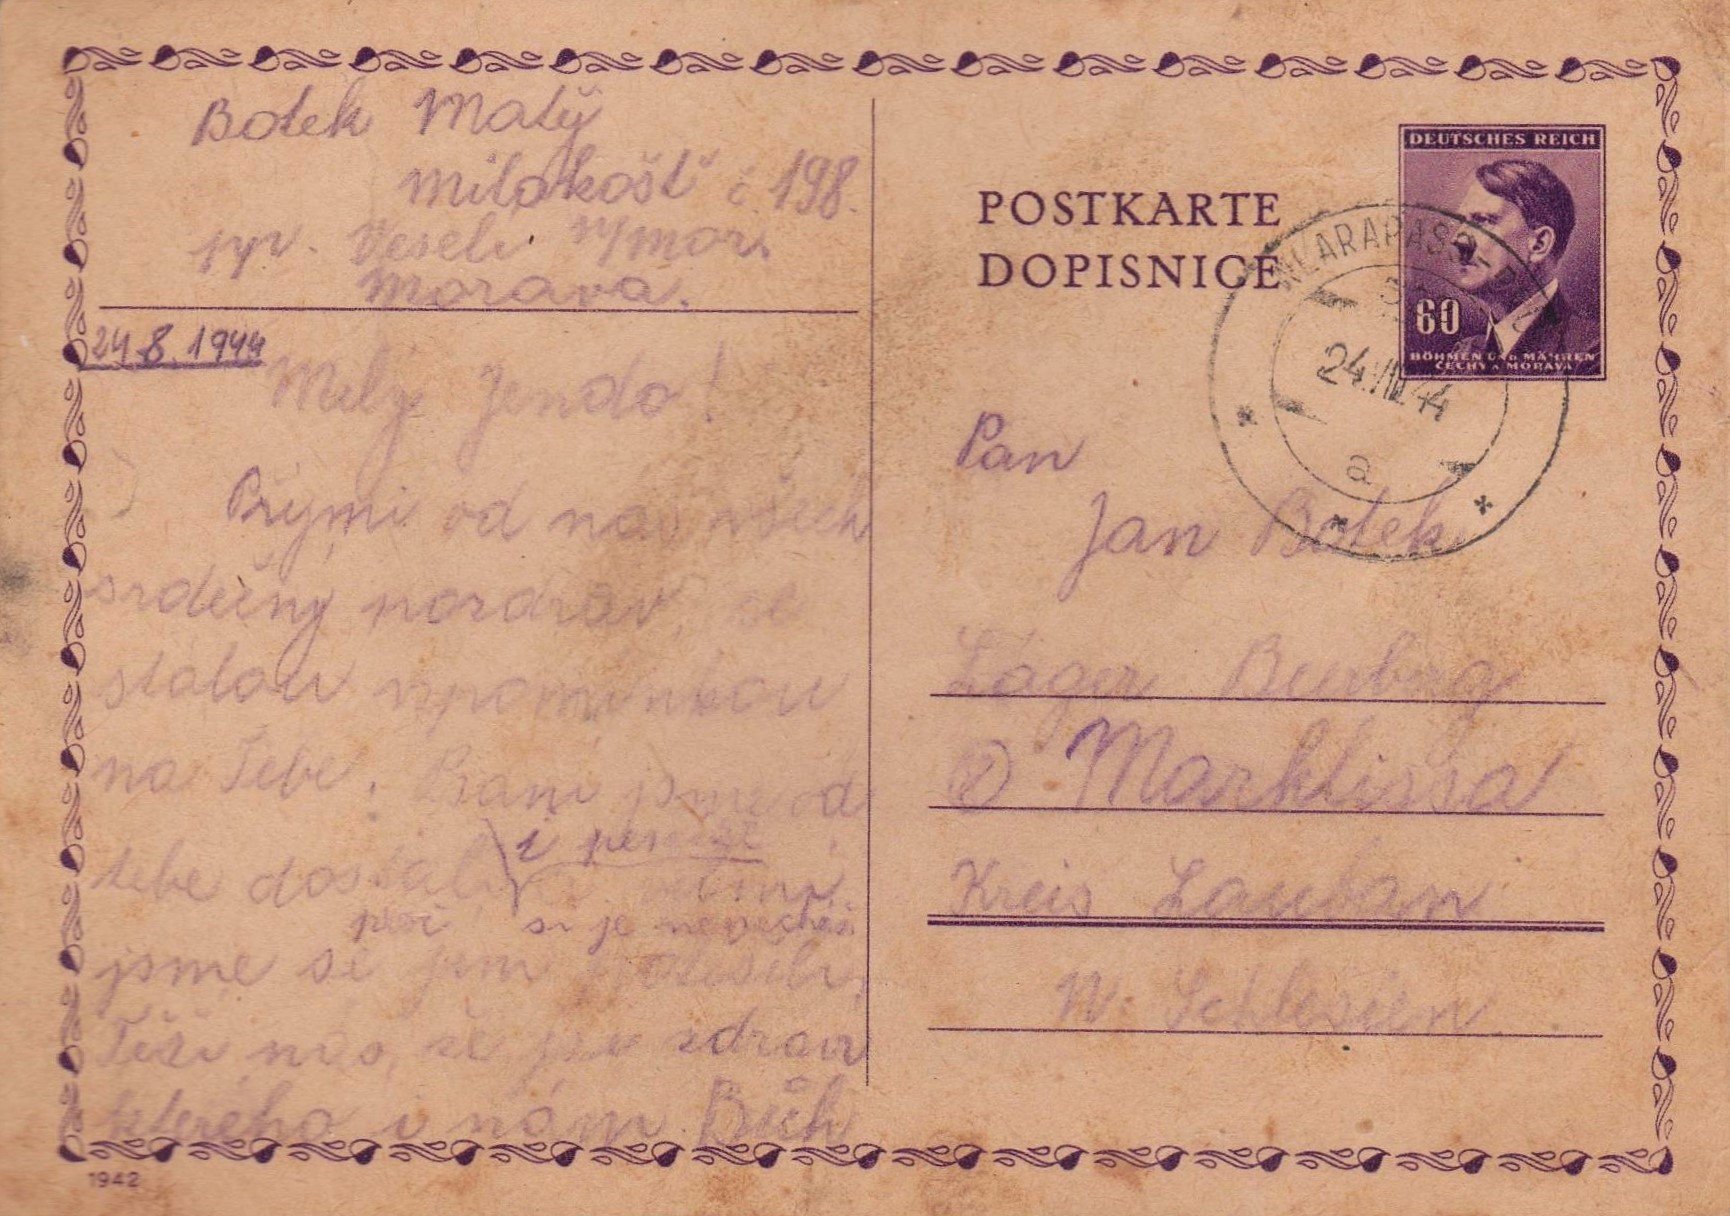 Botek Matěj
Milokošť č 198.
p. Veselí n/Mor.
Morava.
24 8. 1944
Milý Jendo!
Přijmi od nás všech
srdečný pozdrav, se
stálou vzpomínkou
na Tebe. Psaní jsme od
i peníze
tebe dostali
si je nevěděli
jsme se jim potěšili,
Těší nás, že jsi zdráv
kterého i nám Bůh
1942
POSTKARTE
DOPISNICE
DEUTSCHES REICH
60
BÖHMEN UND MÄHREN
ČECHY A MORAVA
24.VIII.44
a
Pan
Jan Botek
Lager
Marklissa
Kreis Lauban
N. Schlesien